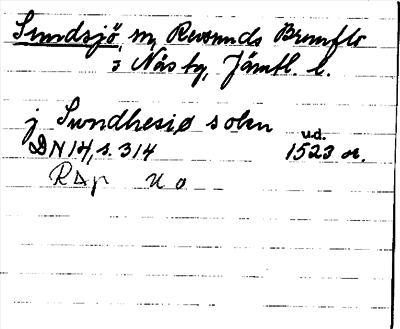 Sundsjö, m, Revsunds Brunflo
s Näs tg, Jämtl. l.
j Sundhesiø solen
ud.
DN 14, s. 314 1523 or.
RAp u o